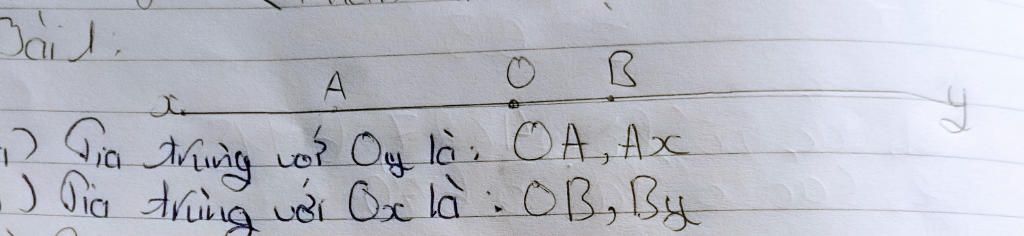 Bài 1:
A O B
x y
) Tia trùng với Oy là: OA, Ax
) Tia trùng với Ox là: OB, By